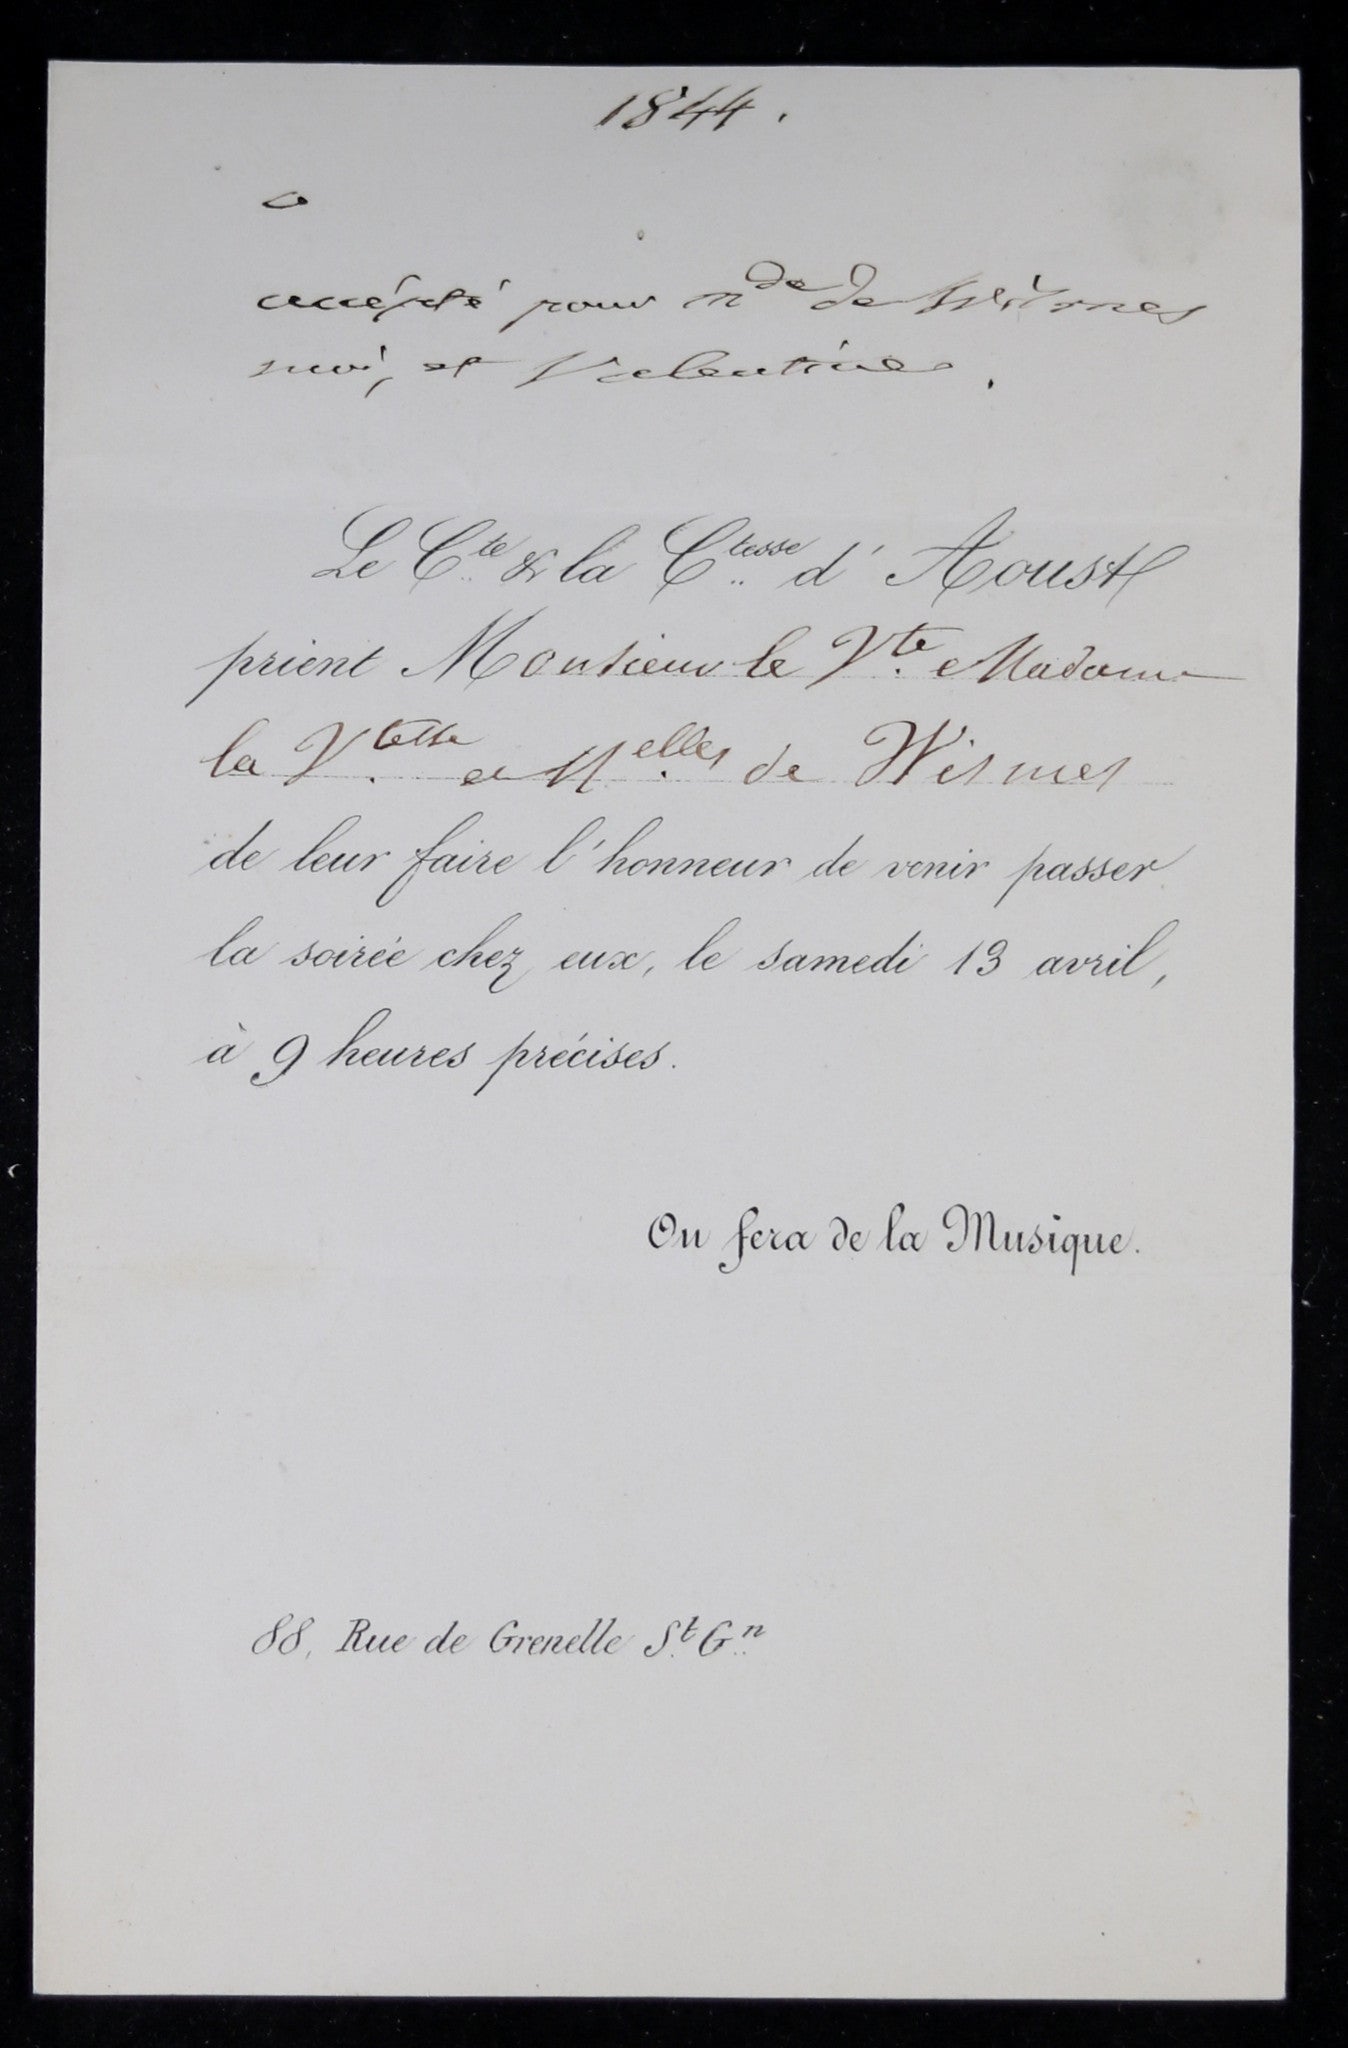 1844.
accépté pour Mde de Wismes
moi, et Valentine.
Le Cte & la Ctesse d'Aoust
prient Monsieur le Vte Madame
la Vtesse et Melles de Wismes
de leur faire l'honneur de venir passer
la soirée chez eux, le samedi 13 avril,
à 9 heures précises.
On fera de la Musique.
88, Rue de Grenelle St Gn